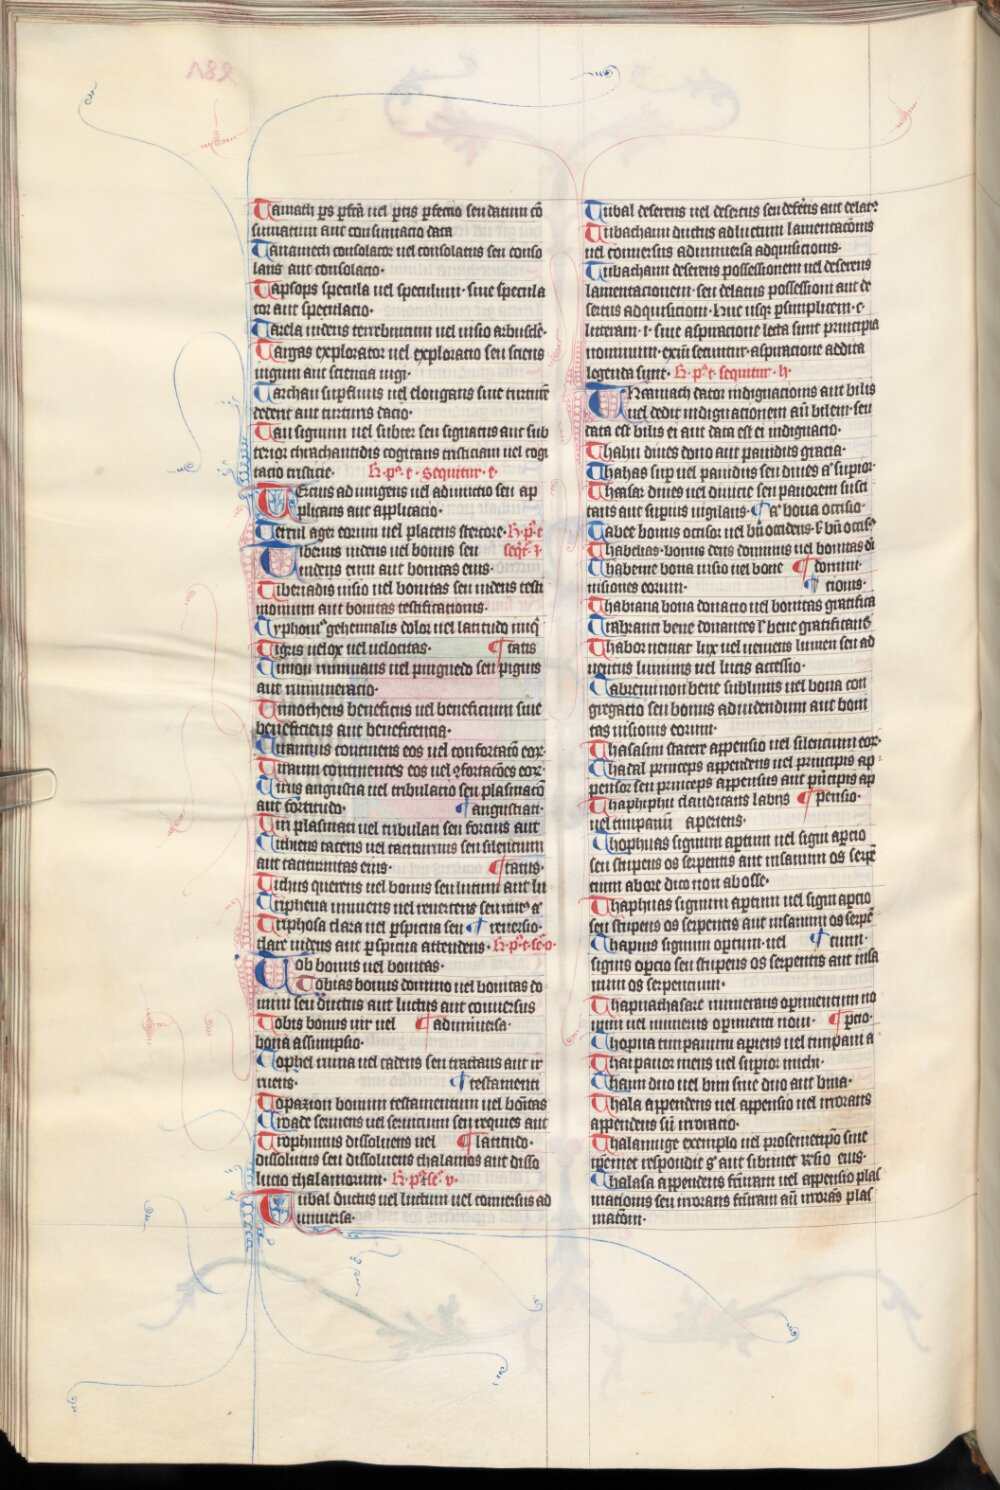 Tamath ps pfcā uel ptis pfectio seu datum cō
sumatum aut consumacio data
Tanamech consolator uel consolatus seu conso
lans aut consolacio·
Tapsops specula uel speculum· siue specula
tor aut speculacio·
Tarela uidens terrebintum uel uisio arbuscle·
Targas explorator uel exploracio seu sciens
iugium aut sciencia iugi·
Tarchan supfluus uel elongatus siue turturē
dederit aut turturis dacio·
Tau signum uel subter seu signatus aut sub
terior chrachantidis cogitans tristiciam uel cogi
tacio tristicie· H·pᵃ·t· sequitur·e·
TEcius ad iungens uel adiunctio seu ap
plicans aut applicatio·
Terrul ager eorum uel placens stercore· H·pᵃ·t
Tiberius uidens uel bonus seu seqr̄·i·
uidens eum aut bonitas eius·
Tiberiadis uisio uel bonitas seu uidens testi
monium aut bonitas testificationis·
Typhonꝰ gehennalis dolor uel latitudo iniq̄
Tigris uelox uel uelocitas· ¶ tatis
Timon numinans uel pinguedo seu pignus
aut numineracio·
Timotheus beneficus uel beneficium siue
beneficiens aut beneficencia·
Tirannus continens eos uel confortatō eor·
Tiranni continentes eos uel ꝯfortacōes eor·
Tirus angustia uel tribulacio seu plasmacō
aut fortitudo· ¶ angustiati·
Tiri plasmati uel tribulati seu fortius aut
Titheus tacens uel taciturnus seu silencium
aut taciturnitas eius· ¶ tatus·
Tichus querens uel bonus seu lutum aut lu
Tripheria uiuuens uel reuertens
Triphosa clara uel pspicua seu ¶ reuersio·
clare uidens aut pspicua attendens· H·pᵃ·t·se·o·
Tob bonus uel bonitas·
Tobias bonus domino uel bonitas do
mini seu ductus aut luctus aut conuersus
Tobis bonus uir uel ¶ aduniuersa·
bona assumpsio·
Tophel ruina uel cadens seu tractans aut ir
ruens· ¶ testamenti
Topazion bonum testamentum uel boitas
Troade seruiens uel seruicium seu requies aut
Trophimus dissoluens uel ¶ latitudo·
dissolutus seu dissoluens thalamos aut disso
lucio thalamorum· H·pᵃ·t·se·v·
Tubal ductus uel luctum uel conuersus ad
uniuersa·
Tubal deferens uel desertus seu defēns aut delatꝰ
Tubacham ductus ad luctum lamentacōnis
uel conuersus aduniuersa adquisicionis·
Tubachann deferens possessionem uel deserens
lamentacionem· seu delatus possessioni aut de
sertus adquisicioni· huc usqꝫ p simplicem·t·
litteram·i· siue aspiracione lecta sunt principia
nominum· exin secuntur· aspiracione addita
legenda sunt· H·pᵃ·t· sequitur·h·
THamath dator indignacionis aut bilis
uel dedit indignacionem aū bilem· seu
data est bilis ei aut data est ei indignacio·
Thahu diues dono aut pauidus gracia·
Thahas sup uel pauidus seu diues a suprior·
Thasar diues uel diuicie seu pauorem susci
tans aut supius uigilans· ¶ bona occisio·
Tabee bonus occisor uel bn̄ occidens
Thabelias· bonus deus dominus uel bonitas di
Thabeme bona uisio uel bone ¶ domini·
uisiones eorum· ¶ cionis·
Thabiana bona donacio uel bonitas gratifica
Trabranci bene donantes
Thabor ueniat lux uel ueniens lumen seu ad
ueniens luminis uel lucis accessio·
Tabremon bene sublimis uel bona con
gregacio seu bonus ad uidendum aut boni
tas uisionis eorum·
Thasasim stater appensio uel silencium eor·
Thadal princeps appendens uel principis ap·
pensor seu princeps appensus aut principis ap
Thaphiphu claudicans labiis ¶ pensio·
uel timpanū aperiens·
Thophuas signum aptum uel signi aptio
seu stupens os serpentis aut insanum os serpē
tium abore dico non abosse·
Thaphuas signum aptum uel signi apcio
seu stupens os serpentis aut insanum os serpē
Thapius signum optum· uel ¶ tium·
signis opcio seu stupens os serpentis aut insa
num os serpentium·
Thapnachasare numerans opimentum no
uum uel numerus opimenti noui· ¶ ptio·
Thopna timpanum apiens uel timpani a
Thai pauor meus uel suprior michi·
Thaim duo uel bini siue duo aut bina·
Thala appendens uel appensio uel irrorans
appendens siū irroracio·
Thalamuge exemplo
respondit
Thalasa appendens uel appensio plas
macionis seu irrorans aū irroras plas
matom·